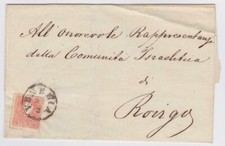 All'onorevole Rappresentanza
della Comunità Israelitica
di
Rovigo
VENEZIA